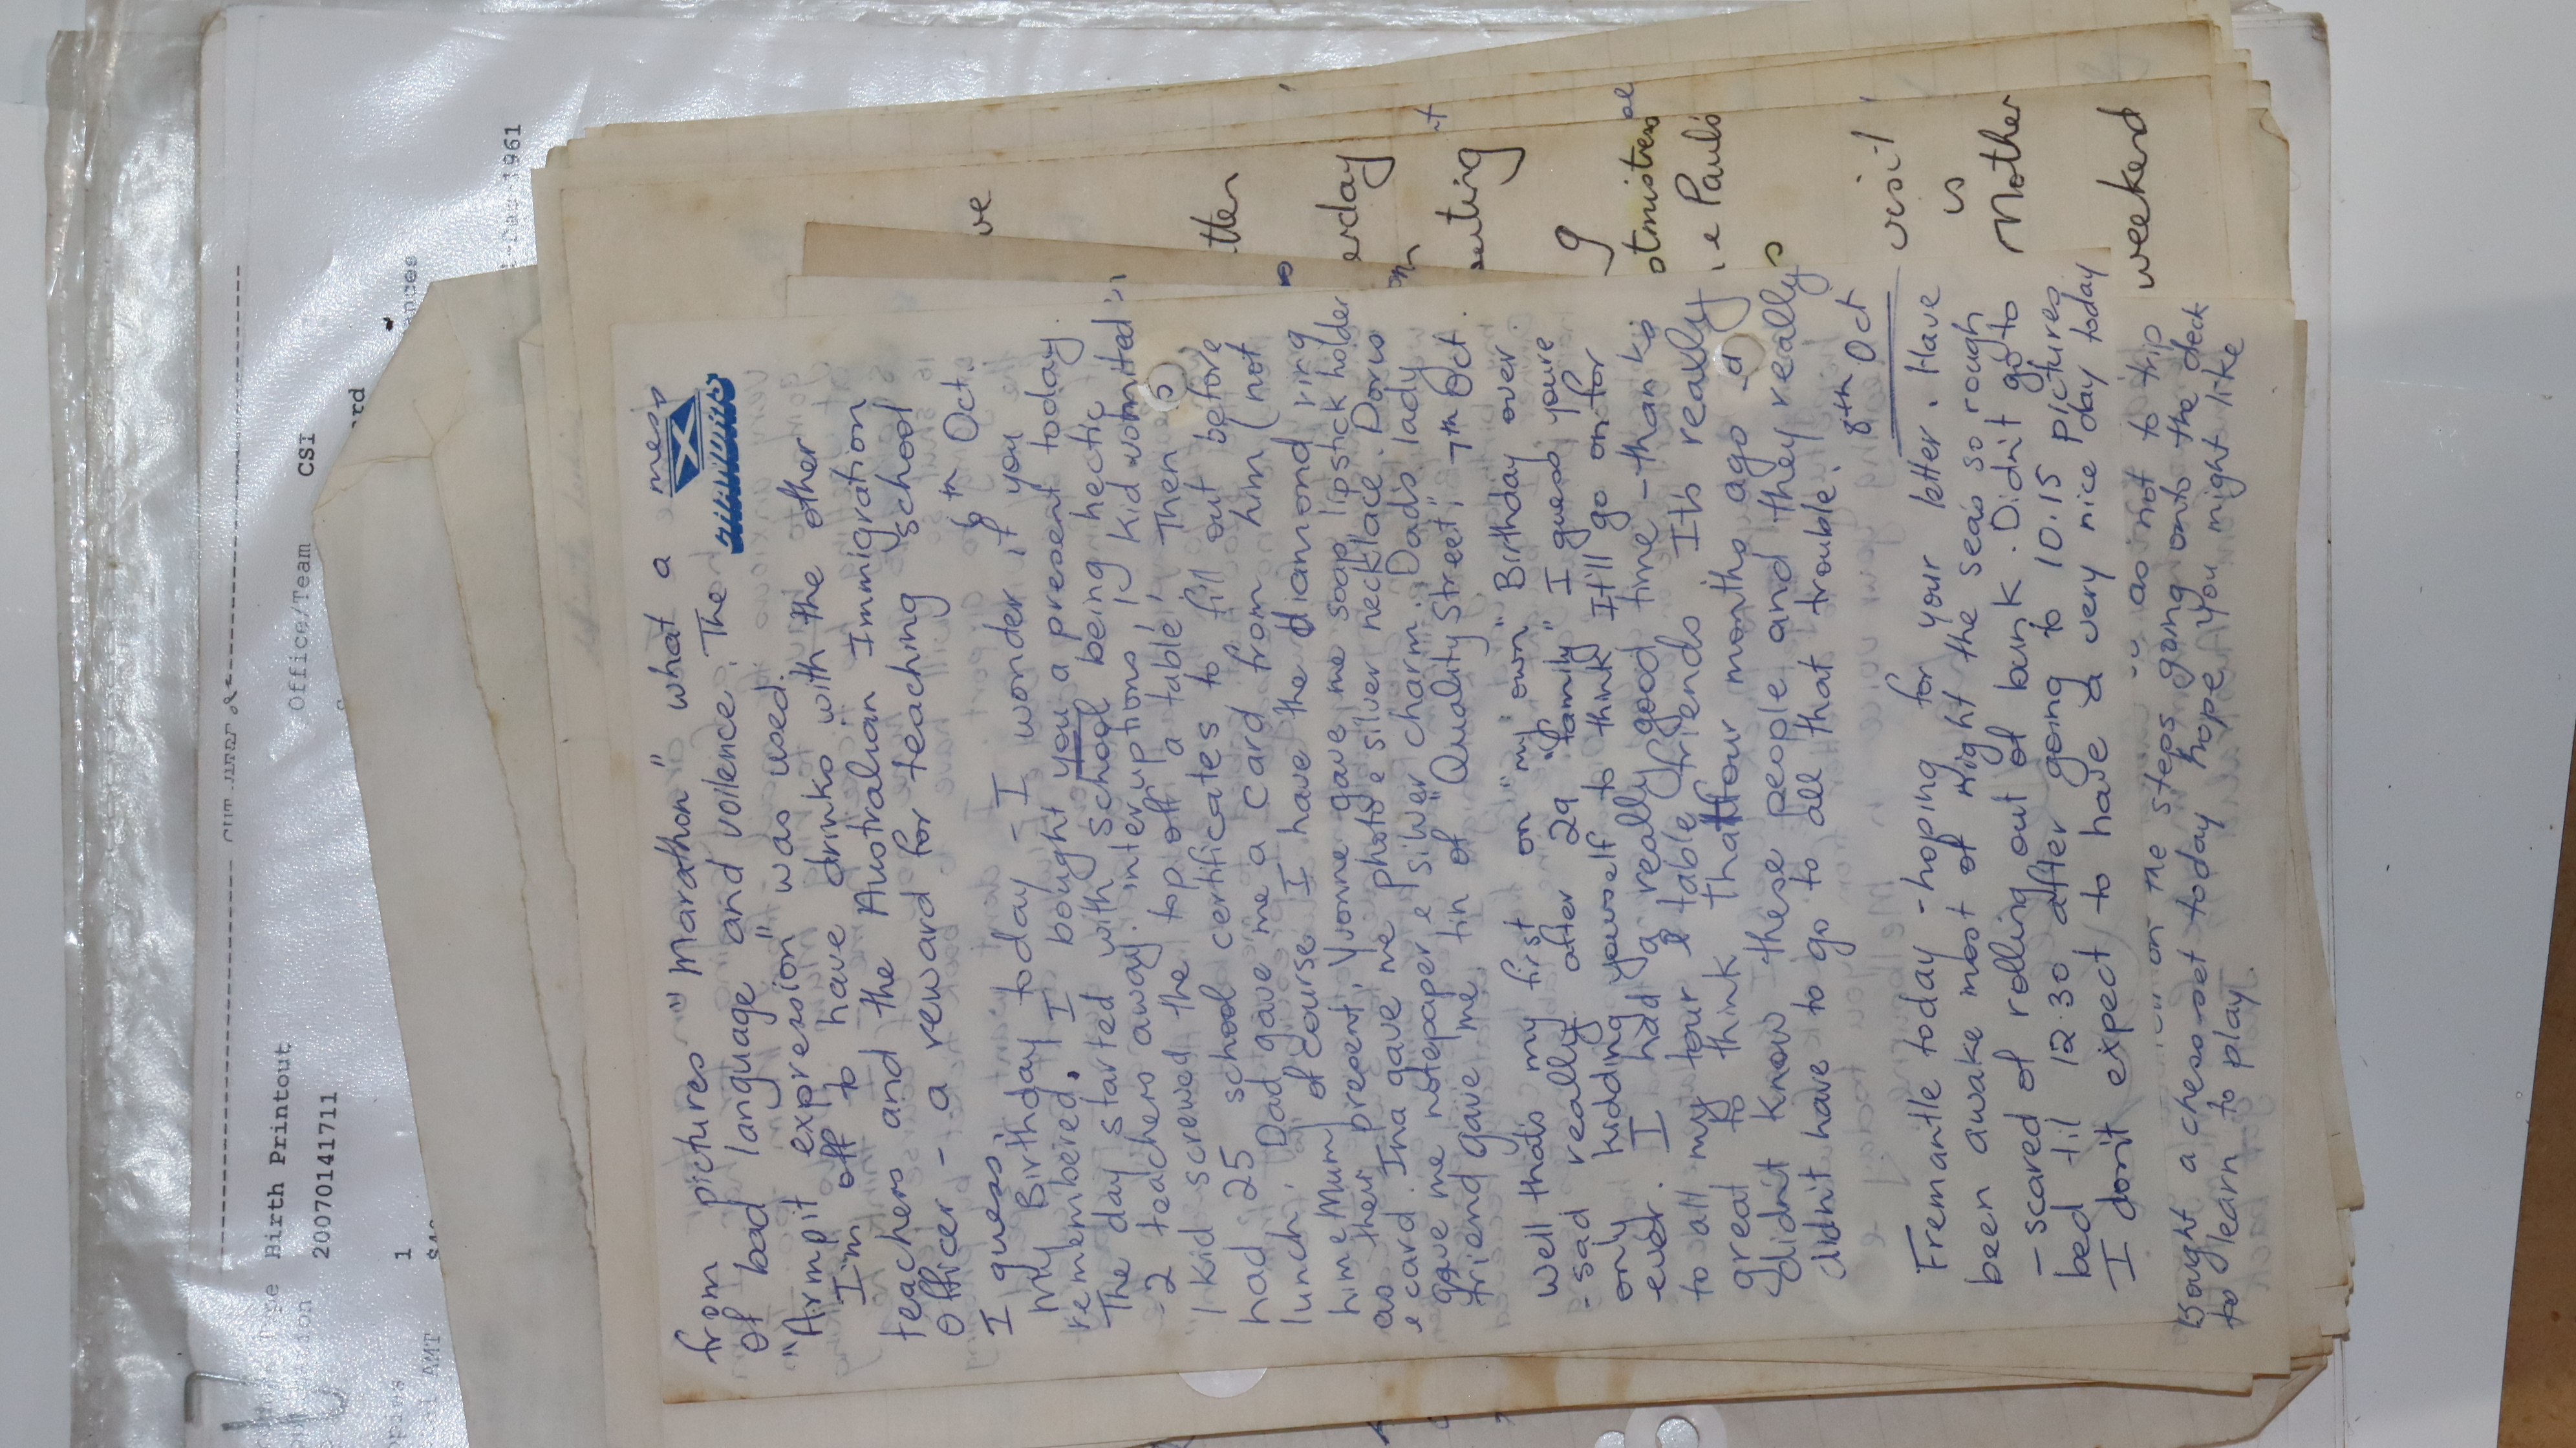 from pictures "Marathon" what a mess
of bad language and voilence. The
"Armpit expression" was used.
I'm off to have drinks with the other
teachers and the Australian Immigration
Officer - a reward for teaching school
I guess. 6th Oct.
My Birthday today - I wonder if you
remembered. I bought you a present today
The day started with school being hectic
-2 teachers away. interuptions 19 kid vomitted in
1 kid screwed the top off a table! Then
had 25 school certificates to fill out before
lunch. Dad gave me a card from him (not
him e Mum) of course I have the diamond ring
as their present. Yvonne gave me soap lipstick holder
e card. Ina gave me photo e silver necklace. Doris
gave me notepaper e silver charm. Dad's lady
friend gave me tin of "Quality Street". 7th Oct.
Well that's my first on "my own" Birthday over.
- sad really after 29 "family" I guess you're
only kidding yourself to think It'll go on for
ever. I had a really good time - thanks
to all my four e table friends It's really
great to think that four months ago I
didn't know these people and they really
didn't have to go to all that trouble.
8th Oct
Fremantle today - hoping for your letter. Have
been awake most of night the seas so rough
- scared of rolling out of bunk. Didn't go to
bed til 12.30 after going to 10.15 pictures
I don't expect to have a very nice day today
on the steps going onto the deck
as not to trip
Bought a chess-set today hope you might like
to learn to play.
visit
is
Mother
weekend
otmistress
e Paul's
erday
Birth Printout
2007014171
Office/Team CSI
1961
1